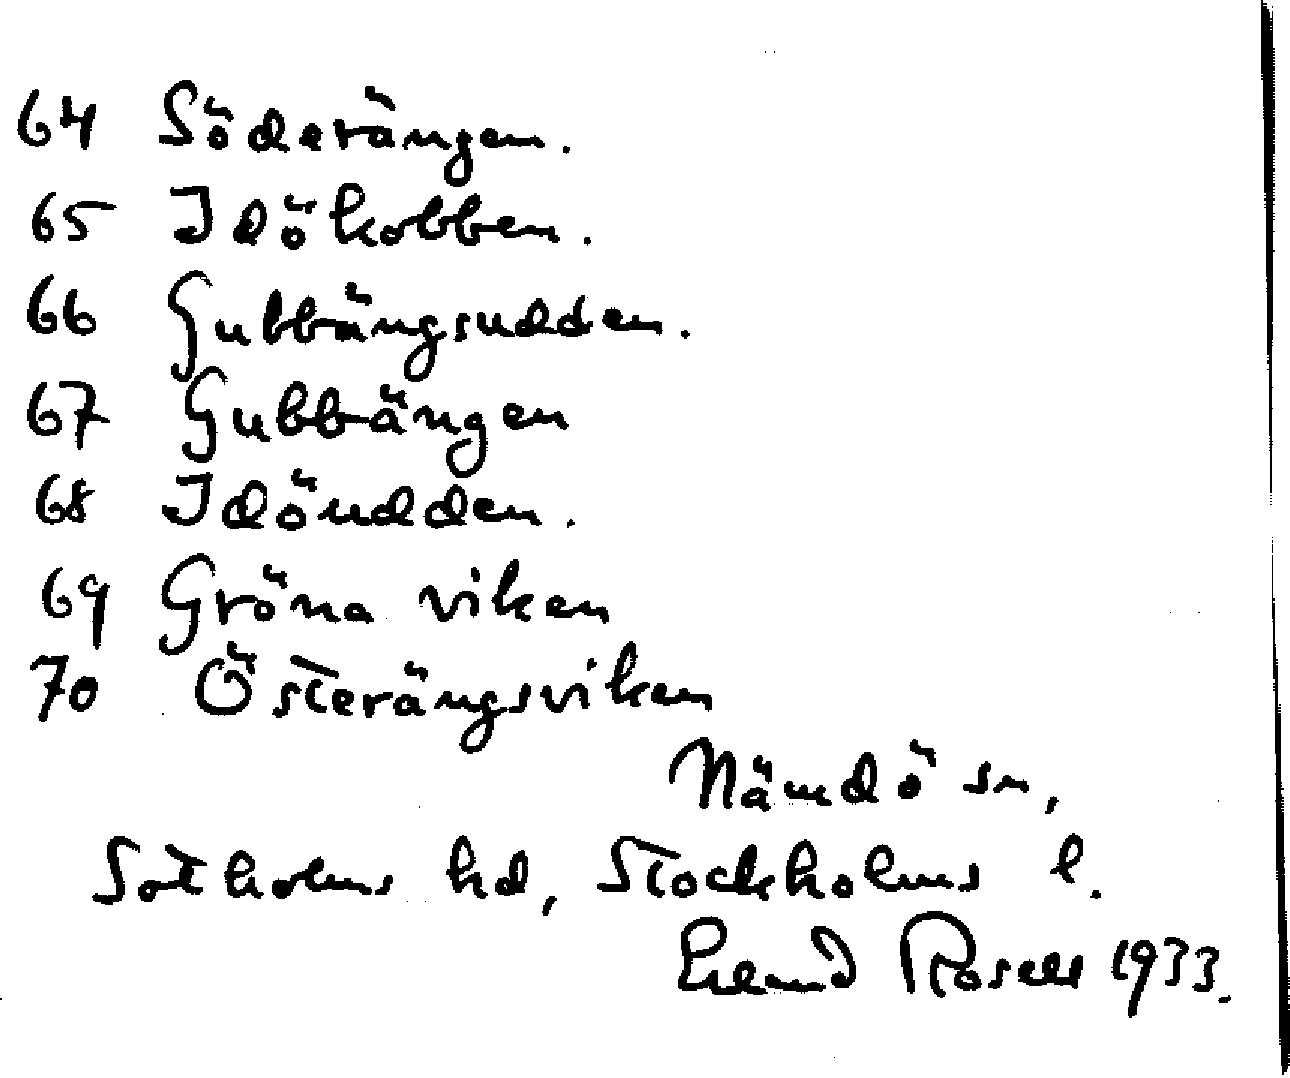 64 Söderängen.
65 Idökobben.
66 Gubbängsudden.
67 Gubbängen
68 Idöudden.
69 Gröna viken
70 Österängsviken
Nämdö sn,
Sotholms hd, Stockholms l.
Erland Rosell 1933.